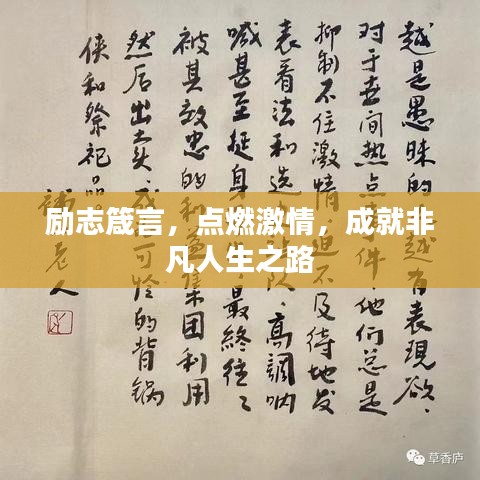 越是愚昧的越有表現欲、
对于世间热点事件,他们总是
抑制不住激情,迫不及待地发
表看法和选队,高調呐
喊甚至挺身,最終往々
被其效忠的利益集团利用
然后出卖、成可怜的背锅
侠和祭祀品。
老人
励志箴言，点燃激情，成就非
凡人生之路
草香庐